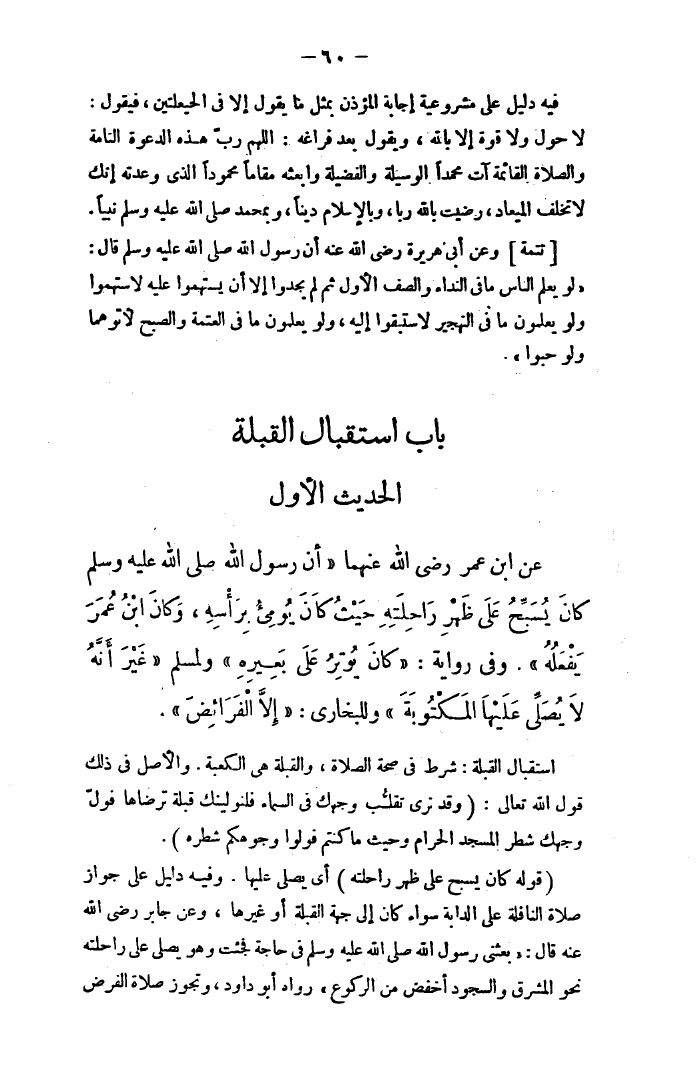 — ٦٠ —
فيه دليل على مشروعية إجابة المؤذن بمثل ما يقول إلا فى الحيعلتين ، فيقول :
لا حول ولا قوة إلا بالله ، ويقول بعد فراغه : اللهم ربّ هذه الدعوة التامة
والصلاة القائمة آت محمداً الوسيلة والفضيلة وابعثه مقاماً محموداً الذى وعدته إنك
لا تخلف الميعاد ، رضيت بالله ربا ، وبالإسلام ديناً ، وبمحمد صلى الله عليه وسلم نبياً .
[ تتمة ] وعن أبى هريرة رضى الله عنه أن رسول الله صلى الله عليه وسلم قال :
« لو يعلم الناس ما فى النداء والصف الأول ثم لم يجدوا إلا أن يستهموا عليه لاستهموا
ولو يعلمون ما فى التهجير لاستبقوا إليه ، ولو يعلمون ما فى العتمة والصبح لأتوهما
ولو حبوا » .
باب استقبال القبلة
الحديث الأول
عن ابن عمر رضى الله عنهما « أن رسول الله صلى الله عليه وسلم
كَانَ يُسَبِّحُ عَلَى ظَهْرِ رَاحِلَتِهِ حَيْثُ كَانَ يُومِئُ بِرَأْسِهِ ، وَكَانَ ابْنُ عُمَرَ
يَفْعَلُهُ » . وفى رواية : « كَانَ يُوتِرُ عَلَى بَعِيرِهِ » ولمسلم « غَيْرَ أَنَّهُ
لَا يُصَلِّى عَلَيْهَا المَكْتُوبَةَ » وللبخارى : « إِلاَّ الْفَرَائِضَ » .
استقبال القبلة : شرط فى صحة الصلاة ، والقبلة هى الكعبة . والأصل فى ذلك
قول الله تعالى : ( وقد نرى تقلُّب وجهك فى السماء فلنولينك قبلة ترضاها فولّ
وجهك شطر المسجد الحرام وحيث ماكنتم فولوا وجوهكم شطره ) .
( قوله كان يسبح على ظهر راحلته ) أى يصلى عليها . وفيه دليل على جواز
صلاة النافلة على الدابة سواء كان إلى جهة القبلة أو غيرها ، وعن جابر رضى الله
عنه قال : « بعثنى رسول الله صلى الله عليه وسلم فى حاجة فجئت وهو يصلى على راحلته
نحو المشرق والسجود أخفض من الركوع » رواه أبو داود ، وتجوز صلاة الفرض